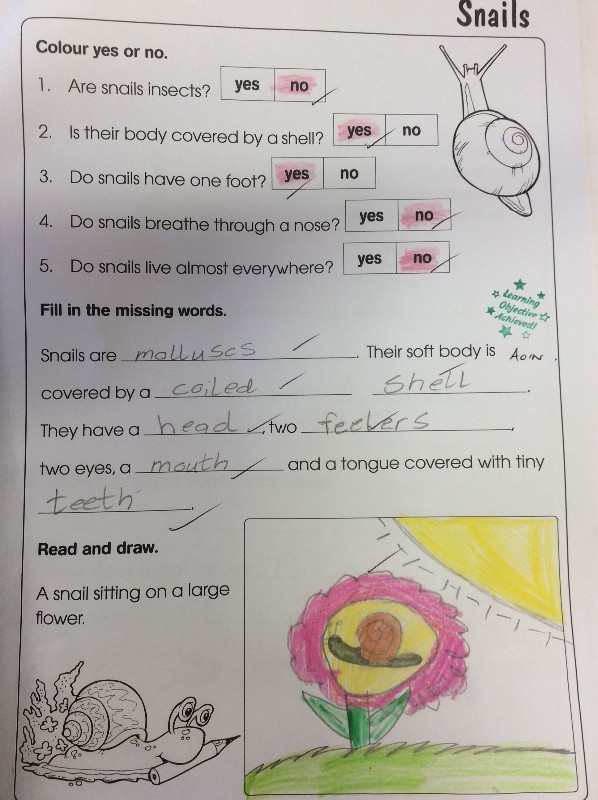 Snails
Colour yes or no.
1. Are snails insects? yes no
2. Is their body covered by a shell? yes no
3. Do snails have one foot? yes no
4. Do snails breathe through a nose? yes no
5. Do snails live almost everywhere? yes no
Learning
Objective
Achieved!
Fill in the missing words.
Snails are molluscs. Their soft body is
covered by a coiled shell.
They have a head, two feelers,
two eyes, a mouth and a tongue covered with tiny
teeth.
Read and draw.
A snail sitting on a large
flower.